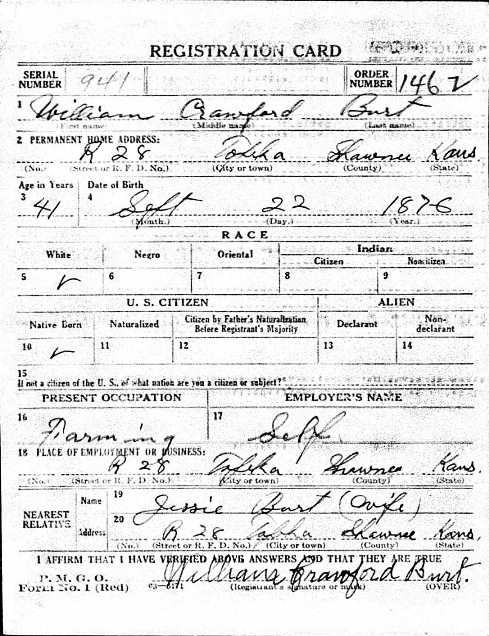 REGISTRATION CARD
SERIAL NUMBER 941 ORDER NUMBER 1462
1 William Crawford Burt
(First name) (Middle name) (Last name)
2 PERMANENT HOME ADDRESS:
R 28 Topeka Shawnee Kans.
(No.) (Street or R. F. D. No.) (City or town) (County) (State)
Age in Years Date of Birth
3 41 4 Sept 22 1876
(Month.) (Day.) (Year.)
RACE
White Negro Oriental Indian
Citizen Noncitizen
5 ✓ 6 7 8 9
U. S. CITIZEN ALIEN
Native Born Naturalized Citizen by Father's Naturalization Before Registrant's Majority Declarant Non-declarant
10 ✓ 11 12 13 14
15
If not a citizen of the U. S., of what nation are you a citizen or subject?
PRESENT OCCUPATION EMPLOYER'S NAME
16 Farming 17 Self
18 PLACE OF EMPLOYMENT OR BUSINESS:
R 28 Topeka Shawnee Kans.
(No.) (Street or R. F. D. No.) (City or town) (County) (State)
NEAREST RELATIVE Name 19 Jessie Burt (Wife)
Address 20 R 28 Topeka Shawnee Kans.
(No.) (Street or R. F. D. No.) (City or town) (County) (State)
I AFFIRM THAT I HAVE VERIFIED ABOVE ANSWERS AND THAT THEY ARE TRUE
P. M. G. O.
Form No. 1 (Red) William Crawford Burt.
(Registrant's signature or mark) (OVER)